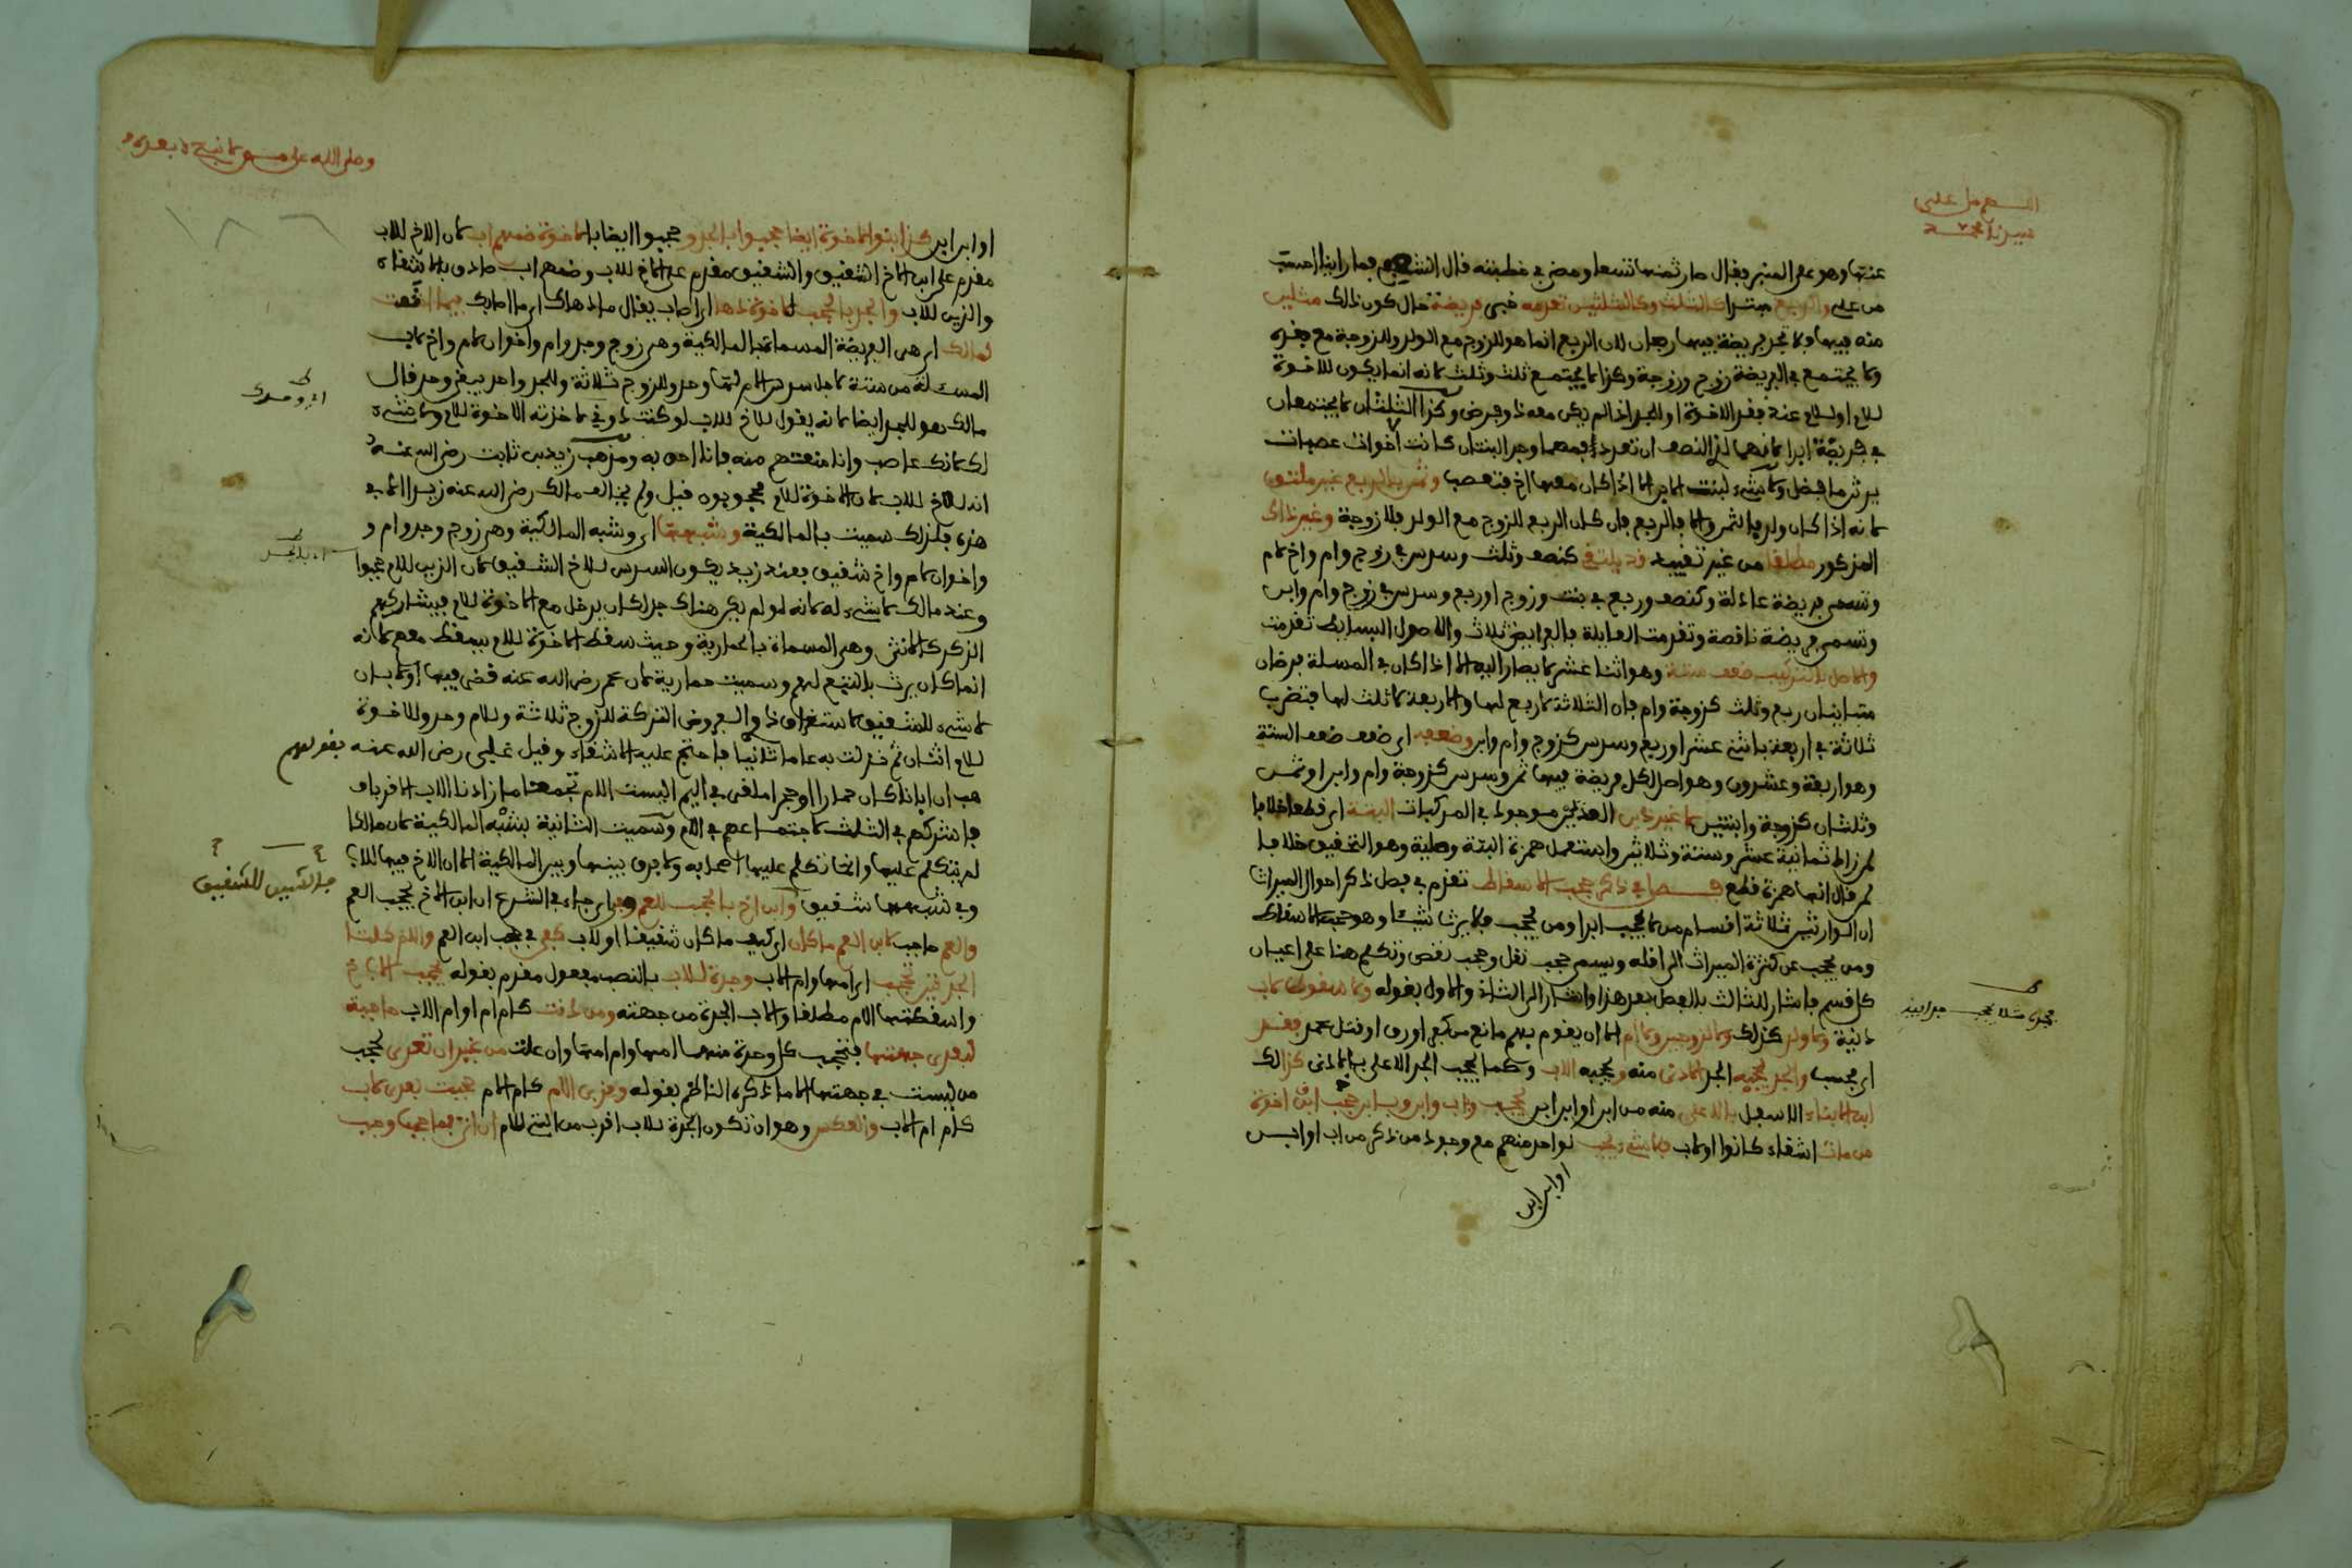 اللهم صل على
سيدنا محمد
عنها وهو على المنبر فقال صار ثمنها تسعا ومضى في خطبته قال
من على والربع مبتدا كالثلث وكالثلثين تعربه خبر فريضة حال كون ذلك مثلين
منه فيها ولا تجد فريضة فيها ربعان لان الربع انما هو للزوج مع الولد وللزوجة مع فقده
ولا يجتمع في الفريضة زوج وزوجة وكذا لا يجتمع ثلث وثلث لانه انما يكون للاخوة
للام او للام عند فقد الاخوة او للجد اذا لم يكن معه ذو فرض وكذا الثلثان لا يجتمعان
في فريضة ابدا لانهما لذي النصف ان تعدد فمهما وجد البنتان كانت الاخوات عصبات
يرثن ما فضل ولا شيء لبنت الابن الا اذا كان معها اخ فتعصب وثمن بالربع غير ملتق
لانه اذا كان ولد فالثمن والا فالربع فان كان الربع للزوج مع الولد فلا زوجة وغير ذاك
المذكور مطلقا من غير تقييد قد يلتقي كنصف وثلث وسدس في زوج وام واخ لام
وتسمى فريضة عادلة وكنصف وربع في بنت وزوج او ربع وسدس في زوج وام وابن
وتسمى فريضة ناقصة وتقدمت العايلة فالفرايض ثلاث والاصول البسايط تقدمت
والاصل بالتركيب ضعف ستة وهو اثنا عشر لا يصار اليه الا اذا كان في المسلة فرضان
متباينان ربع وثلث كزوجة وام فان الثلاثة لا ربع لها والاربعة لا ثلث لها فتضرب
ثلاثة في اربعة باثني عشر او ربع وسدس كزوج وام وابن وضعفه اي ضعف ضعف الستة
وهو اربعة وعشرون وهو اصل لكل فريضة فيها ثمن وسدس كزوجة وام وابن او ثمن
وثلثان كزوجة وابنتين لا غير ذين العددين موجود في المركبات البتة اي قطعا خلافا
لمن زاد ثمانية عشر وستة وثلاثين واستعمل همزة البتة وصلية وهو التحقيق خلافا
لمن قال انها همزة قطع فصل في ذكر حجب الاسقاط تقدم في فصل ذكر احوال الميراث
ان الوارثين ثلاثة اقسام من لا يحجب ابدا ومن يحجب فلا يرث شيئا وهو حجب الاسقاط
ومن يحجب عن كثرة الميراث الى اقله ويسمى حجب نقل وحجب نقص وتكلم هنا على اعيان
كل قسم فاشار للثالث بالفصل بعد هذا واشار الى الثاني والاول بقوله ولا سقوط لاب
دنية ولا ولد كذلك ولا لزوجين ولا ام الا ان يقوم بهم مانع من كفر او رق او قتل عمد فقد
اي فحسب والجد يحجبه الجد الادنى منه ويحجبه الاب وكما يحجب الجد الاعلى بالادنى كذلك
ابن الابناء الاسفل بالاعلى منه من ابن او ابن ابن يحجب وباب وابن وبابن حجب ابن اخوة
من مات اشقاء كانوا او لاب فلا شيء يجب لواحد منهم مع وجود من ذكر من اب او ابن
او ابن ابن
وصلى الله على من لا نبي بعده
او ابن ابن كذا بنو الاخوة ايضا حجبوا بالجد وحجبوا ايضا بالاخوة ضمهم اب لان الاخ للاب
مقدم على ابن الاخ الشقيق والشقيق مقدم على الاخ للاب وضمهم اب صادق بالاشقاء
والذين للاب والجد بالحجب لاخوة دها اي اصاب يقال ما دهاك اي ما اصابك فيما انتمت
لمالك اي هي الفريضة المسماة بالمالكية وهي زوج وجد وام واخوان لام واخ لاب
المسئلة من ستة لاجل سدس الام لها وحد وللزوج ثلاثة وللجد واحد يبقى وحد قال
مالك هو للجد ايضا لانه يقول للاخ للاب لو كنت دوني لاخذته الاخوة للام ولا شيء
لك لانك عاصب وانا منعتهم منه فانا احق به ومذهب زيد بن ثابت رضي الله عنه
انه للاخ للاب لان الاخوة للام محجوبون قيل ولم يخالف مالك رضي الله عنه زيدا الا في
هذه فلذلك سميت بالمالكية وشبهها اي وشبه المالكية وهي زوج وجد وام و
واخوان لام واخ شقيق فعند زيد يكون السدس للاخ الشقيق لان الذين للام حجبوا
وعند مالك لا شيء له لانه لو لم يكن هناك جد لكان يدخل مع الاخوة للام فيشاركهم
الذكر كالانثى وهي المسماة بالحمارية وحيث سقط الاخوة للام سقط معهم لانه
انما كان يرث بالتبع لهم وسميت حمارية لان عمر رضي الله عنه قضى فيها اولا بان
لا شيء للشقيق لاستغراق ذوي الفروض التركة للزوج ثلاثة وللام وحد وللاخوة
للام اثنان ثم نزلت به عاما ثانيا فاحتج عليه الاشقاء وقيل علي رضي الله عنه بقولهم
هب ان ابانا كان حمارا او حجرا ملقى في اليم اليست الام تجمعنا ما زادنا الاب الا قربا
فاشركهم في الثلث لاجتماعهم في الام وسميت الثانية بشبه المالكية لان مالكا
لم يتكلم عليها وانما تكلم عليها اصحابه ولا فرق بينها وبين المالكية الا ان الاخ فيها للاب
وفي شبهها شقيق وابن اخ بالحجب للعم وفى اي جاء في الشرع ان ابن الاخ يحجب العم
والعم حاجب لابن العم ما كان اي كيف ما كان شقيقا او لاب كفى في حجب ابن العم والام كلتا
الجدتين تحجب اي امها وام الاب وجدة للاب بالنصب مفعول مقدم بقوله يحجب الاب
واسقطتها الام مطلقا والاب الجدة من جهته ومن دنت كام ام او ام الاب حاجبة
لبعدى جهتها فتحجب كل وحدة منهما امها وام امها وان علت من غير ان تعدى لحجب
من ليست في جهتها الا ما ذكره الناظم بقوله وقربى الام كام الام حجبت بعدى لاب
كام ام الاب والعكس وهو ان تكون الجدة للاب اقرب من التي للام ان اتى فما حجبا وجب